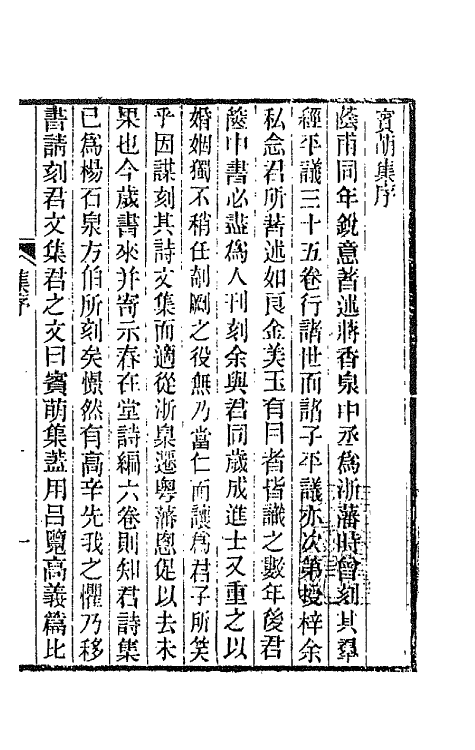 賓萌集序
蔭甫同年銳意著述蔣香泉中丞爲浙藩時曾刻其羣
經平議三十五卷行諸世而諸子平議亦次第授梓余
私念君所著述如良金美玉有目者皆識之數年後君
篋中書必盡爲人刊刻余與君同歲成進士又重之以
婚姻獨不稍任剞劂之役無乃當仁而讓爲君子所笑
乎因謀刻其詩文集而適從浙臬遷粵藩悤促以去未
果也今歲書來并寄示春在堂詩編六卷則知君詩集
已爲楊石泉方伯所刻矣憬然有高辛先我之懼乃移
書請刻君文集君之文曰賓萌集蓋用呂覽高義篇比
集序
一